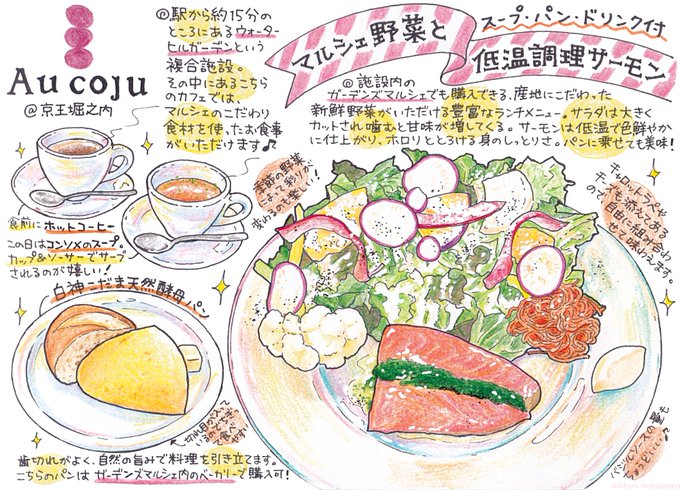 Au coju
@京王堀之内
@駅から約15分の
ところにあるウォーター
ヒルガーデンという
複合施設。
その中にあるこちら
のカフェでは、
マルシェのこだわり
食材を使ったお食事
がいただけます♪
スープ・パン・ドリンク付
マルシェ野菜と
低温調理サーモン
@施設内の
ガーデンズマルシェでも購入できる、産地にこだわった
新鮮野菜がいただける豊富なランチメニュー。サラダは大きく
カットされ噛むと甘味が増してくる。サーモンは低温で色鮮やか
に仕上がり、ホロリととろける身のしっとりさ。パンに乗せても美味!
食前にホットコーヒー
この日はコンソメのスープ。
カップ&ソーサーでサーブ
されるのが嬉しい!
季節の野菜
によって彩りが
変わるのも楽しい!
キャロットラペや
チーズも添えてある
ので自由に組み合わ
せて味わえます。
白神こだま天然酵母パン
切れ目が入っ
ているので
食べ
やすい
歯切れがよく、自然の旨みで料理を引き立てます。
こちらのパンはガーデンズマルシェ内のベーカリーで購入可!
バジルソースの
量も
ちょうどいい